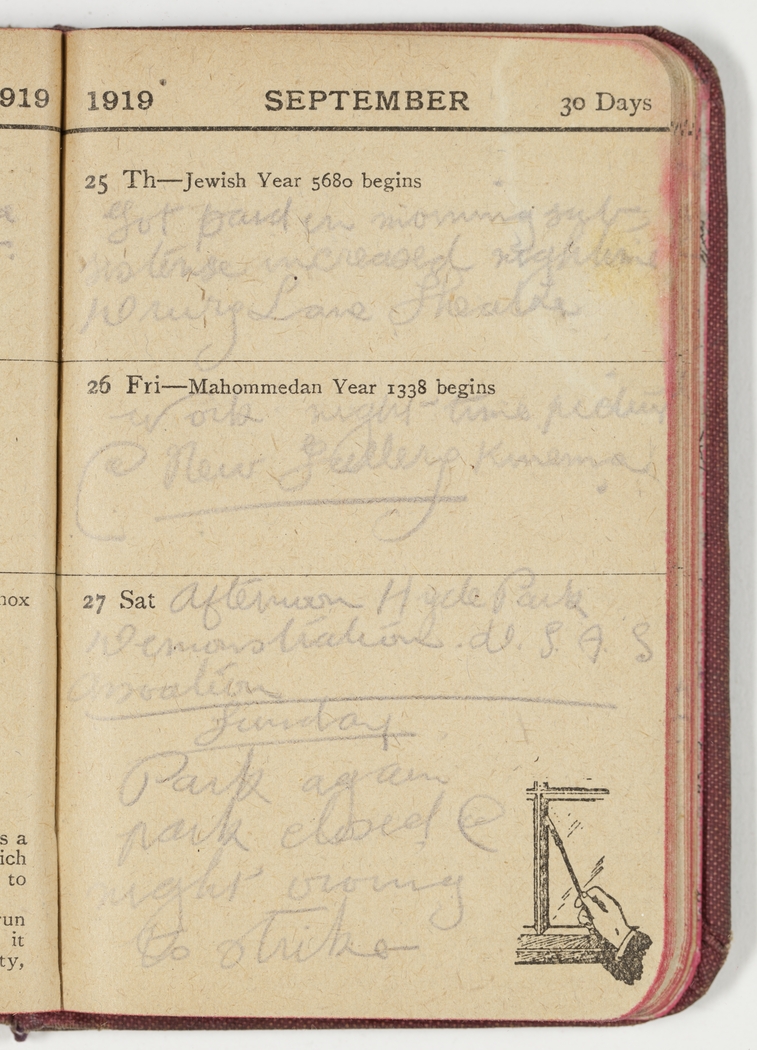 919
nox
s a
ich
to
run
it
ty,
1919 SEPTEMBER 30 Days
25 Th—Jewish Year 5680 begins
Got paid in morning sub
sistense increased night time
Drury Lane Theatre
26 Fri—Mahommedan Year 1338 begins
Work night-time
@ New Gallery Kinema
27 Sat Afternoon Hyde Park
Demonstration. S
Sunday
Park again
park closed @
night owing
to strike